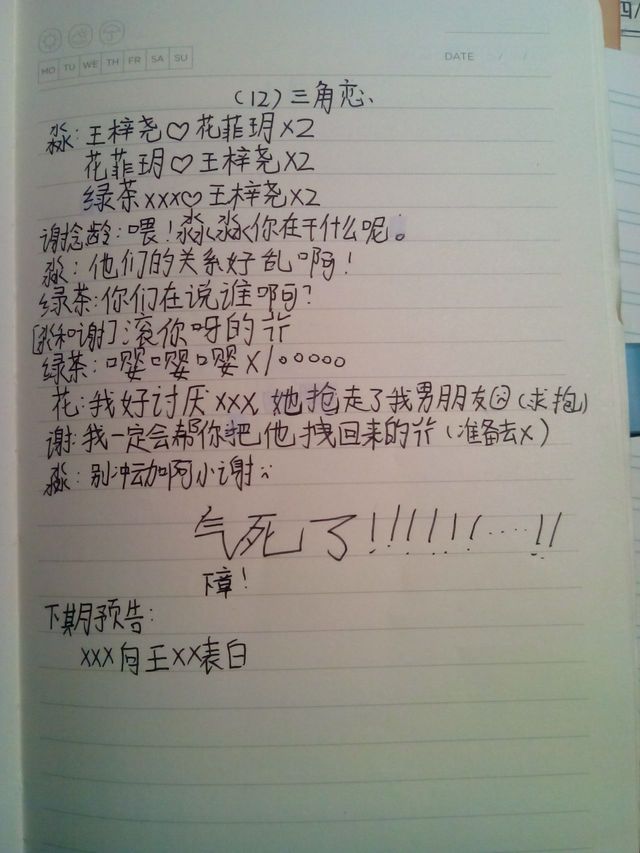 MO TU WE TH FR SA SU
DATE / /
(12)三角恋、
淼:王梓尧♡花菲玥X2
花菲玥♡王梓尧X2
绿茶xxx♡王梓尧X2
谢捻龄:喂!淼淼你在干什么呢。
淼:他们的关系好乱啊!
绿茶:你们在说谁啊?
[淼和谢]滚你呀的
绿茶:嘤嘤嘤X1ooooo
花:我好讨厌xxx,她抢走了我男朋友(求抱)
谢:我一定会帮你把他拽回来的(准备去X)
淼:别冲动啊小谢
气死了!!!!!!…!!
下章!
下期预告:
xxx向王XX表白
四/